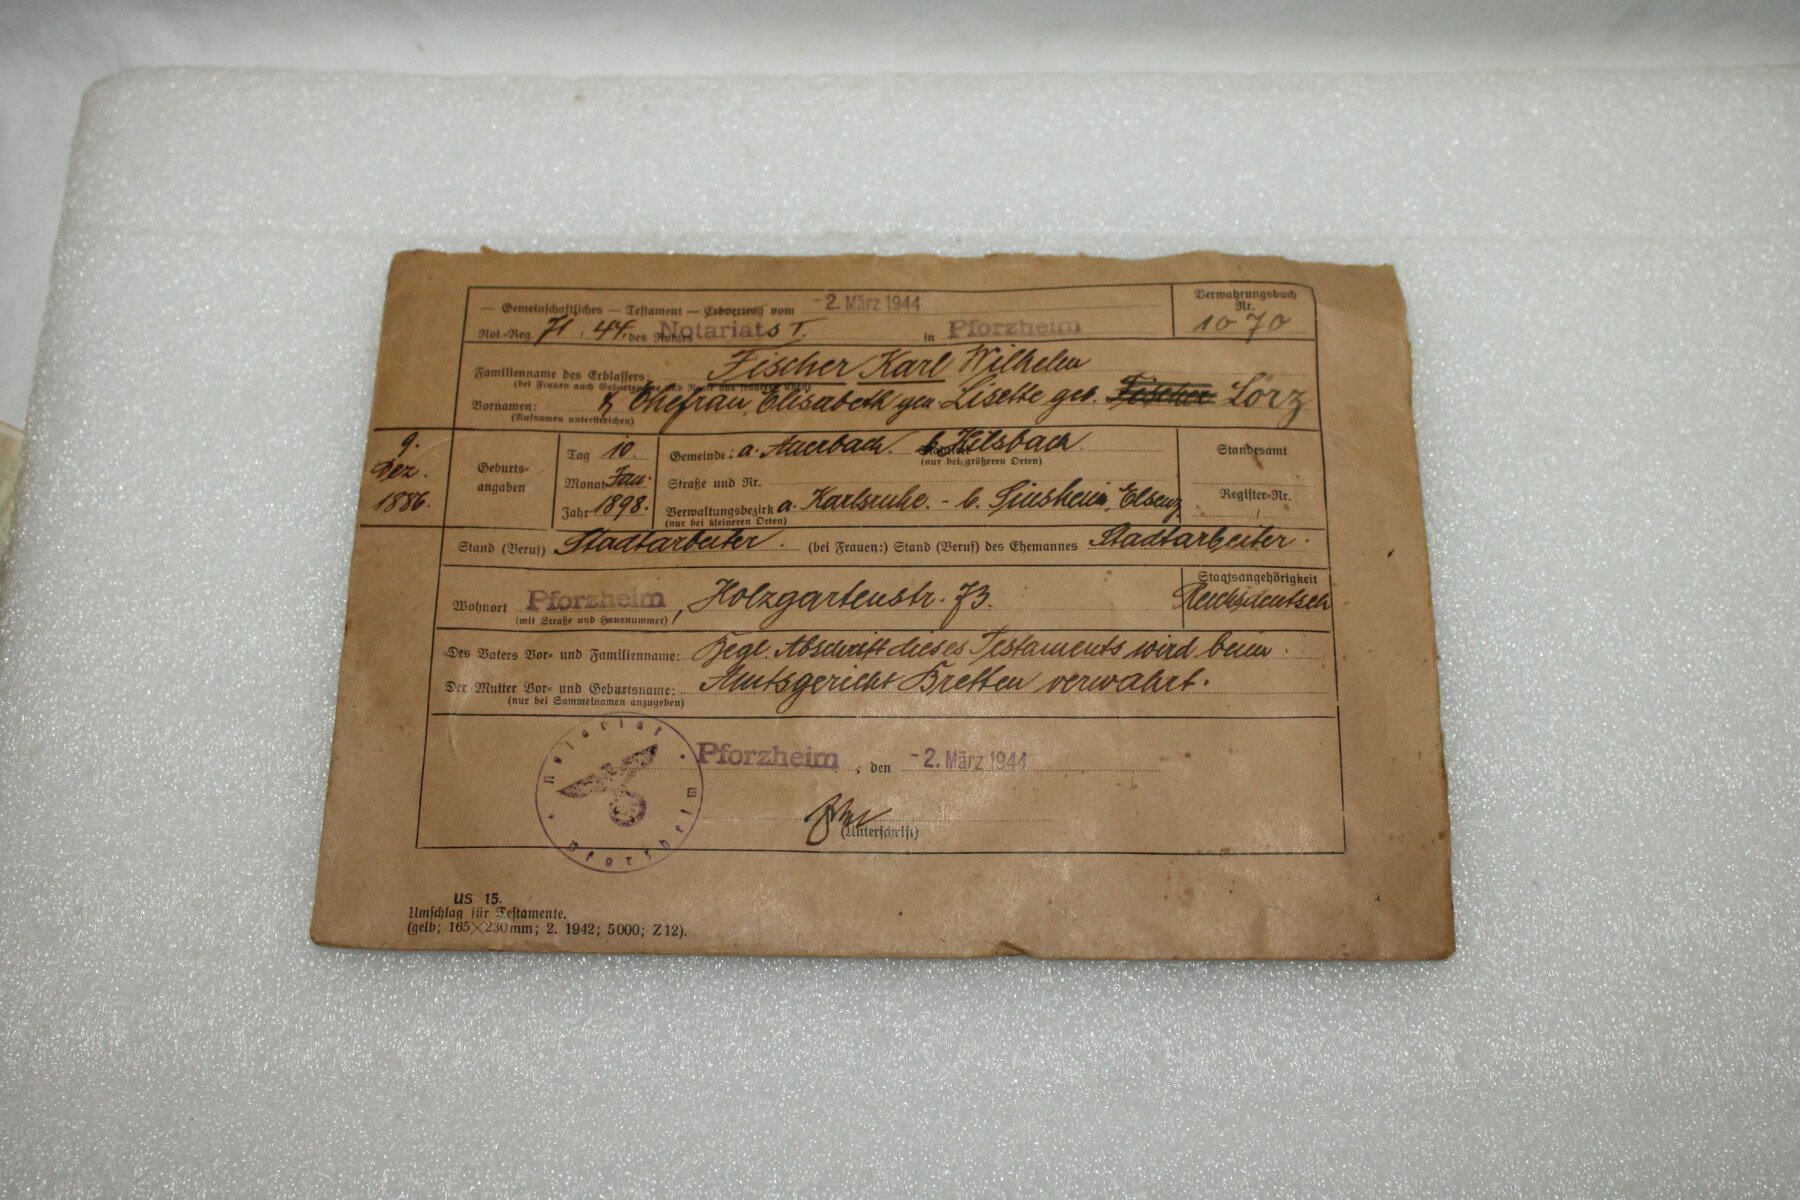 — Gemeinschaftliches — Testament — Erbvertrag vom -2. März 1944
Not.-Reg. 71. 44. des Notars Notariats I. in Pforzheim
Verwahrungsbuch
Nr.
1070
Familienname des Erblassers: Fischer Karl Wilhelm
(bei Frauen auch Geburtsname und Name aus früheren Ehen)
Vornamen: Ehefrau, Elisabeth gen. Lisette geb. Fischer Lörz
(Rufnamen unterstreichen)
9.
Dez.
1886.
Geburts-
angaben
Tag 10.
Monat Jan.
Jahr 1898.
Gemeinde: a. Auerbach. b. Hilsbach
(nur bei größeren Orten)
Straße und Nr.
Verwaltungsbezirk a. Karlsruhe. - b. Sinsheim, Elsenz
(nur bei kleineren Orten)
Standesamt
Register-Nr.
Stand (Beruf) Stadtarbeiter. (bei Frauen:) Stand (Beruf) des Ehemannes Stadtarbeiter.
Wohnort Pforzheim, Holzgartenstr. 73.
(mit Straße und Hausnummer)
Staatsangehörigkeit
Reichsdeutsch
Des Vaters Vor- und Familienname: Begl. Abschrift dieses Testaments wird beim
Der Mutter Vor- und Geburtsname: Amtsgericht Bretten verwahrt.
(nur bei Sammelnamen anzugeben)
Notariat Pforzheim
Pforzheim, den -2. März 1944
(Unterschrift)
US 15.
Umschlag für Testamente.
(gelb; 165×230 mm; 2. 1942; 5000; Z 12).